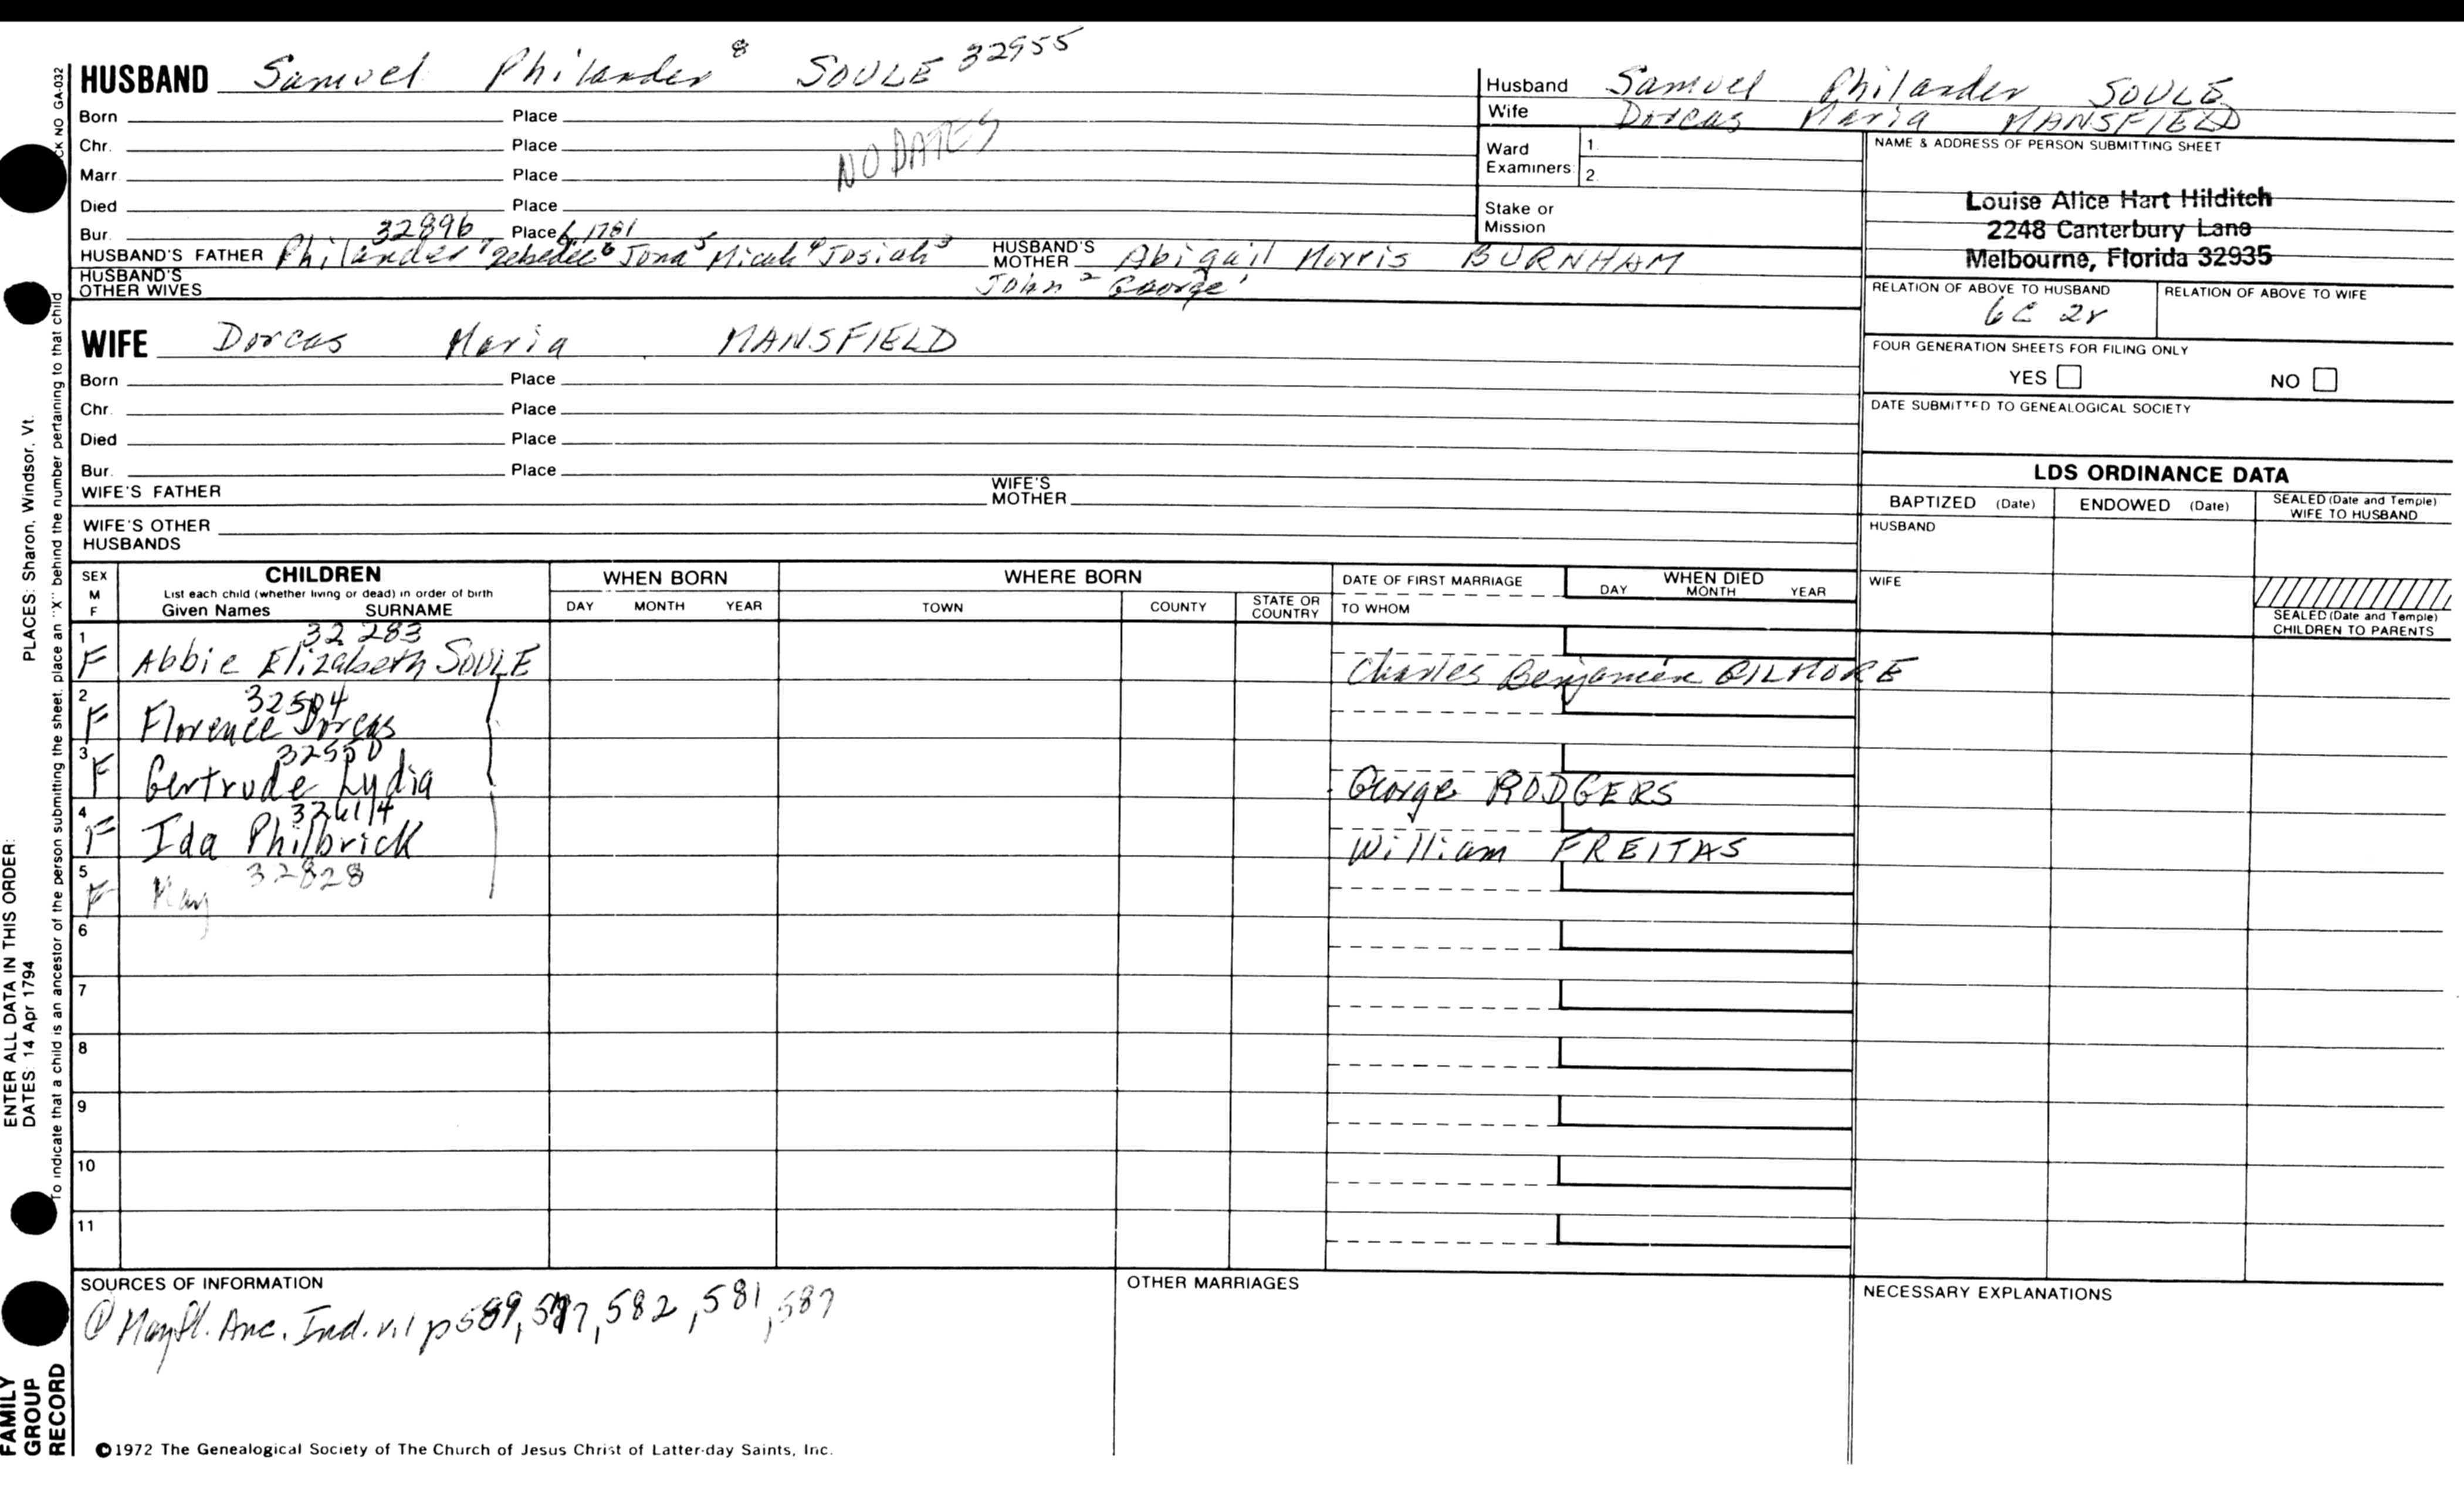 HUSBAND Samuel Philander 8 SOULE 32955
Born Place
Chr. Place
Marr. Place
NO DATES
Died Place
Bur. 32896 Place 6 1781
HUSBAND'S FATHER Philander 7 Zebedee 6 Jona 5 Micah 4 Josiah 3 HUSBAND'S MOTHER Abigail Norris BURNHAM
HUSBAND'S OTHER WIVES John 2 George 1
WIFE Dorcas Maria MANSFIELD
Born Place
Chr. Place
Died Place
Bur. Place
WIFE'S FATHER WIFE'S MOTHER
WIFE'S OTHER HUSBANDS
Husband Samuel Philander SOULE
Wife Dorcas Maria MANSFIELD
Ward Examiners 1.
2.
Stake or Mission
NAME & ADDRESS OF PERSON SUBMITTING SHEET
Louise Alice Hart Hilditch
2248 Canterbury Lane
Melbourne, Florida 32935
RELATION OF ABOVE TO HUSBAND RELATION OF ABOVE TO WIFE
6C 2r
FOUR GENERATION SHEETS FOR FILING ONLY
YES NO
DATE SUBMITTED TO GENEALOGICAL SOCIETY
LDS ORDINANCE DATA
BAPTIZED (Date) ENDOWED (Date) SEALED (Date and Temple) WIFE TO HUSBAND
HUSBAND
WIFE
SEALED (Date and Temple) CHILDREN TO PARENTS
SEX M F CHILDREN WHEN BORN WHERE BORN DATE OF FIRST MARRIAGE WHEN DIED
List each child (whether living or dead) in order of birth
Given Names SURNAME DAY MONTH YEAR TOWN COUNTY STATE OR COUNTRY TO WHOM DAY MONTH YEAR
32283
1 F Abbie Elizabeth SOULE Charles Benjamin GILMORE
32504
2 F Florence Dorcas
32550
3 F Gertrude Lydia George RODGERS
32614
4 F Ida Philbrick William FREITAS
32828
5 F May
6
7
8
9
10
11
SOURCES OF INFORMATION
Mayfl. Anc. Ind. v.1 p 589, 577, 582, 581, 587
OTHER MARRIAGES
NECESSARY EXPLANATIONS
©1972 The Genealogical Society of The Church of Jesus Christ of Latter-day Saints, Inc.
CK NO GA-032
To indicate that a child is an ancestor of the person submitting the sheet, place an "X" behind the number pertaining to that child
ENTER ALL DATA IN THIS ORDER:
DATES: 14 Apr 1794 PLACES: Sharon, Windsor, Vt.
FAMILY
GROUP
RECORD